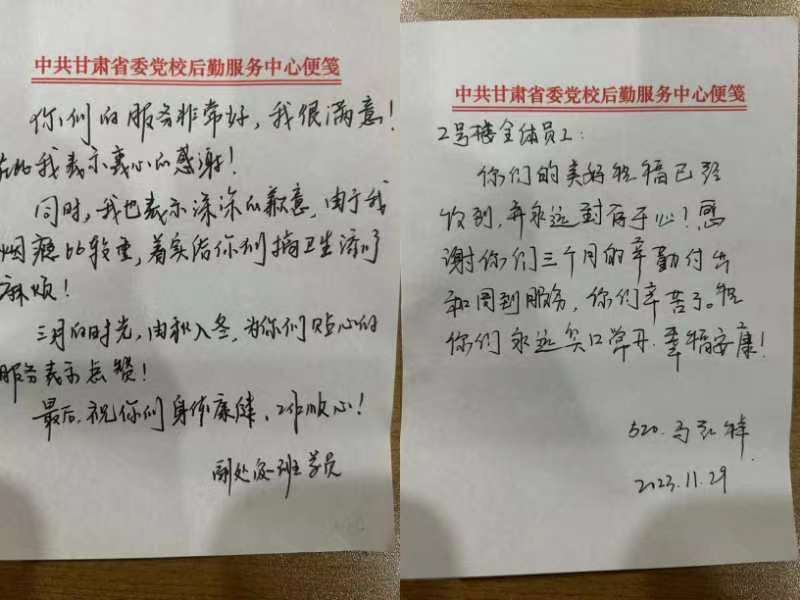 中共甘肃省委党校后勤服务中心便笺
你们的服务非常好，我很满意！
在此我表示衷心的感谢！
同时，我也表示深深的歉意，由于我
烟瘾比较重，着实给你们搞卫生添了
麻烦！
三月的时光，由秋入冬，为你们贴心的
服务表示点赞！
最后，祝你们身体康健、工作顺心！
副处级一班学员
中共甘肃省委党校后勤服务中心便笺
2号楼全体员工：
你们的美好祝福已经
收到，并永远封存于心！感
谢你们三个月的辛勤付出
和周到服务，你们辛苦了。祝
你们永远笑口常开，幸福安康！
520. 马
2023.11.29